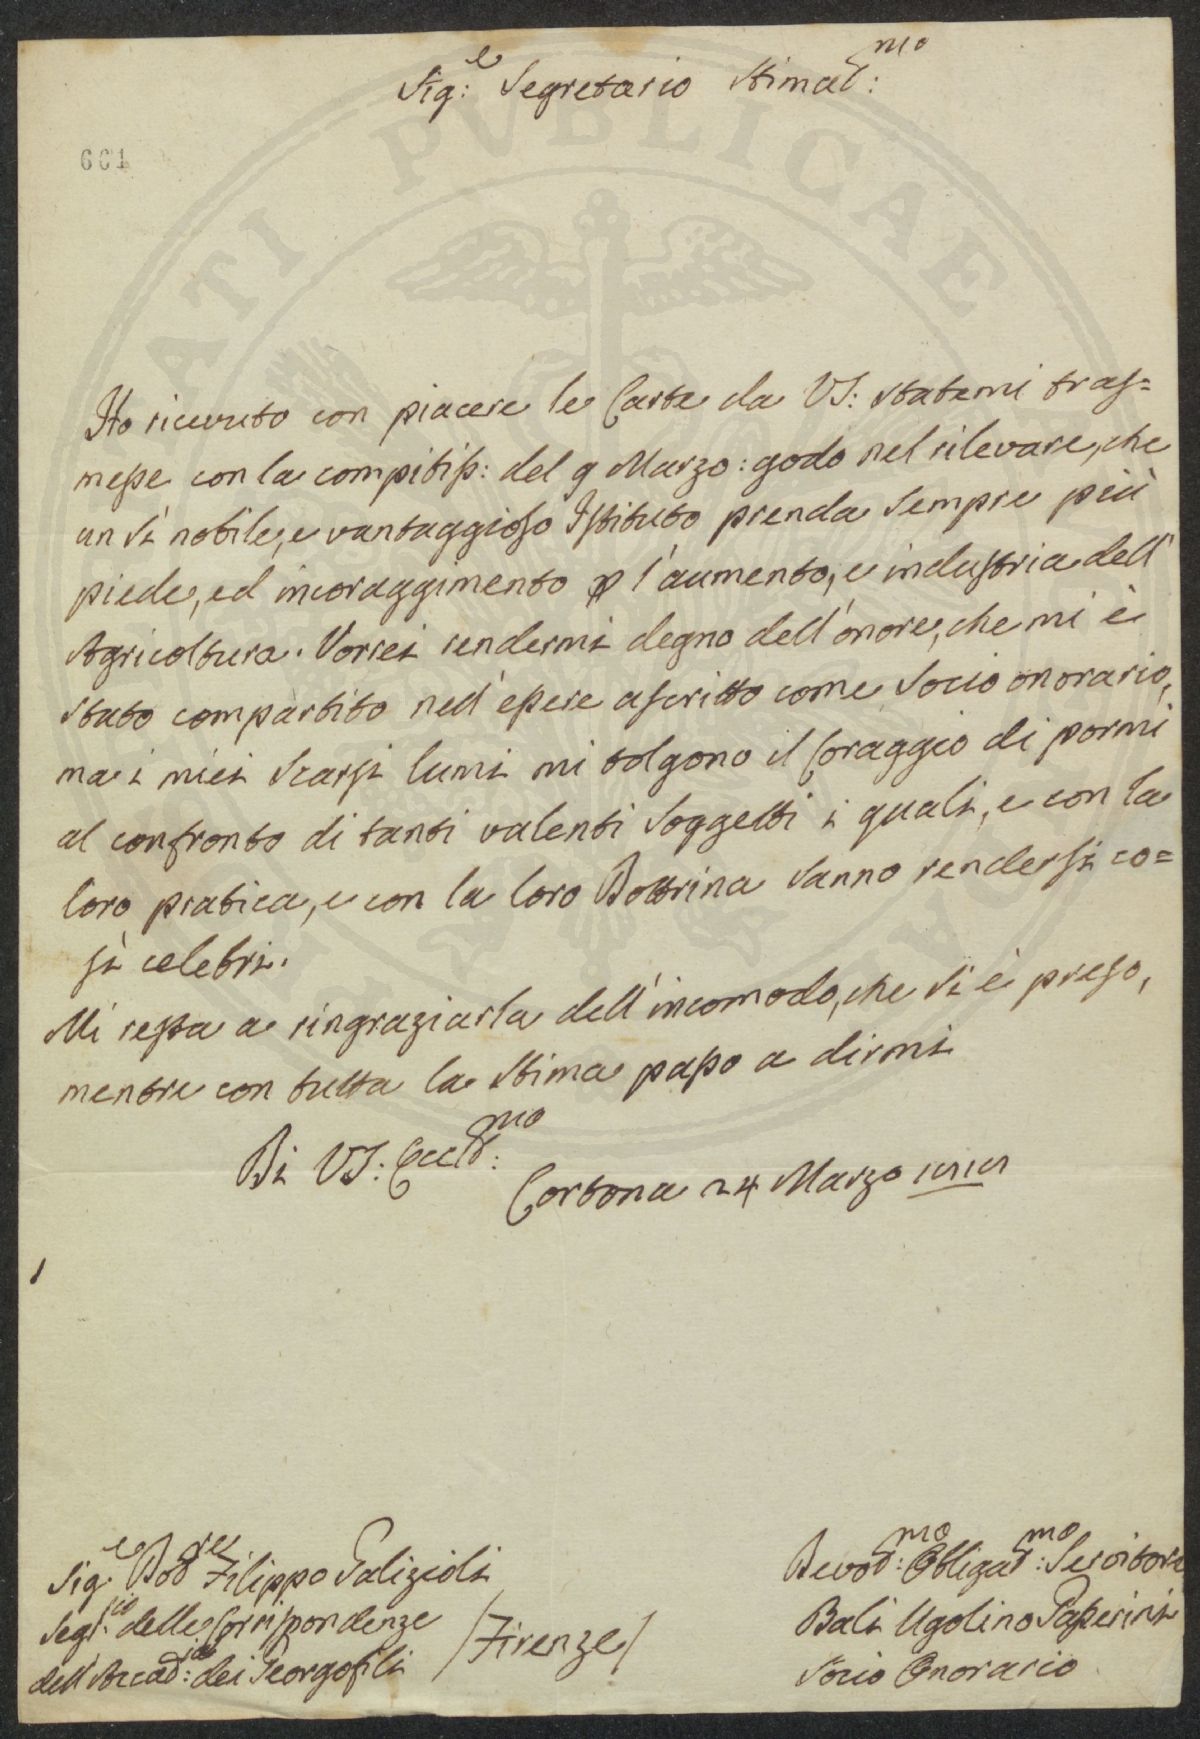 Sig:e Segretario Stimat:mo
601
Ho ricevuto con piacere le Carte da VS: statemi tras=
messe con la compitiss: del 9 Marzo: godo nel rilevare, che
un sì nobile, e vantaggioso Istituto prenda sempre più
piede, ed incoraggimento p l'aumento, e industria dell'
Agricoltura. Vorrei rendermi degno dell'onore, che mi è
stato compartito nell'essere ascritto come Socio onorario,
ma i miei scarsi lumi mi tolgono il Coraggio di pormi
al confronto di tanti valenti soggetti i quali, e con la
loro pratica, e con la loro Dottrina sanno rendersi co=
sì celebri.
Mi resta a ringraziarla dell'incomodo, che si è preso,
mentre con tutta la stima passo a dirmi
Di VS: Eccell:mo
Cortona 24 Marzo
Sig:e Dot:re Filippo Galizioli
Seg:rio delle Corrispondenze
dell'Accad:ia dei Georgofili
/Firenze/
Devot:mo Obligat:mo Servitore
Balì Ugolino Passerini
Socio Onorario
PVBLICAE